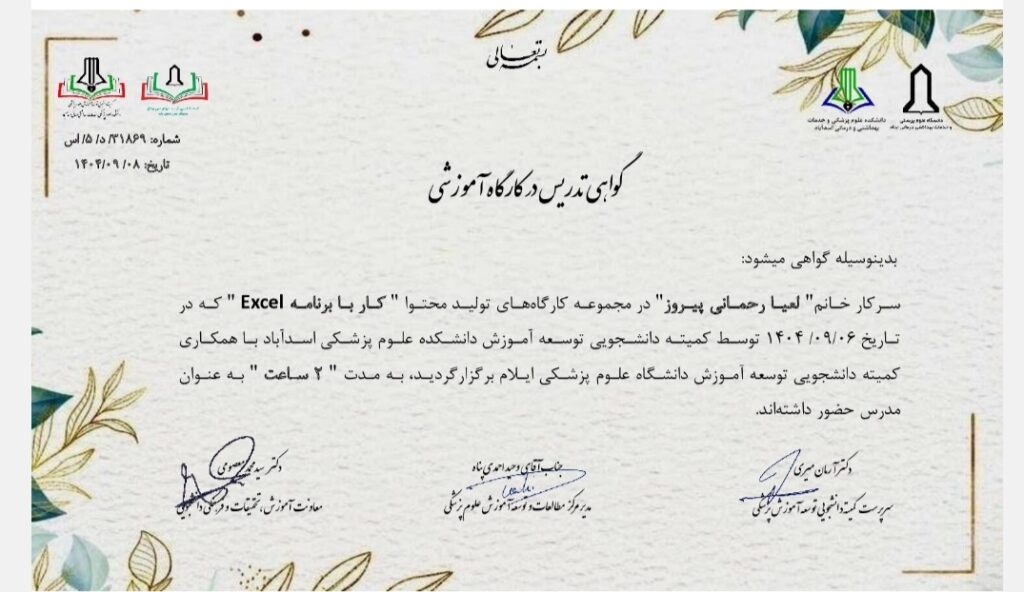 بسمه تعالی
دانشگاه علوم پزشکی
دانشکده علوم پزشکی و خدمات
بهداشتی و درمانی اسدآباد
شماره: ۳۱۸۶۹/ د/ ۵/ اس
تاریخ: ۰۸/ ۰۹/ ۱۴۰۴
گواهی تدریس در کارگاه آموزشی
بدینوسیله گواهی میشود:
سرکار خانم" لعیا رحمانی پیروز" در مجموعه کارگاه‌های تولید محتوا " کار با برنامه Excel " که در
تاریخ ۰۹/۰۶/ ۱۴۰۴ توسط کمیته دانشجویی توسعه آموزش دانشکده علوم پزشکی اسدآباد با همکاری
کمیته دانشجویی توسعه آموزش دانشگاه علوم پزشکی ایلام برگزارگردید، به مدت " ۲ ساعت " به عنوان
مدرس حضور داشته‌اند.
دکتر آرمان میری
سرپرست کمیته دانشجویی توسعه آموزش پزشکی
جناب آقای وحید احمدی پناه
مدیر مرکز مطالعات و توسعه آموزش علوم پزشکی
دکتر سید محمد معصومی
معاونت آموزش، تحقیقات و فرهنگی دانشجویی